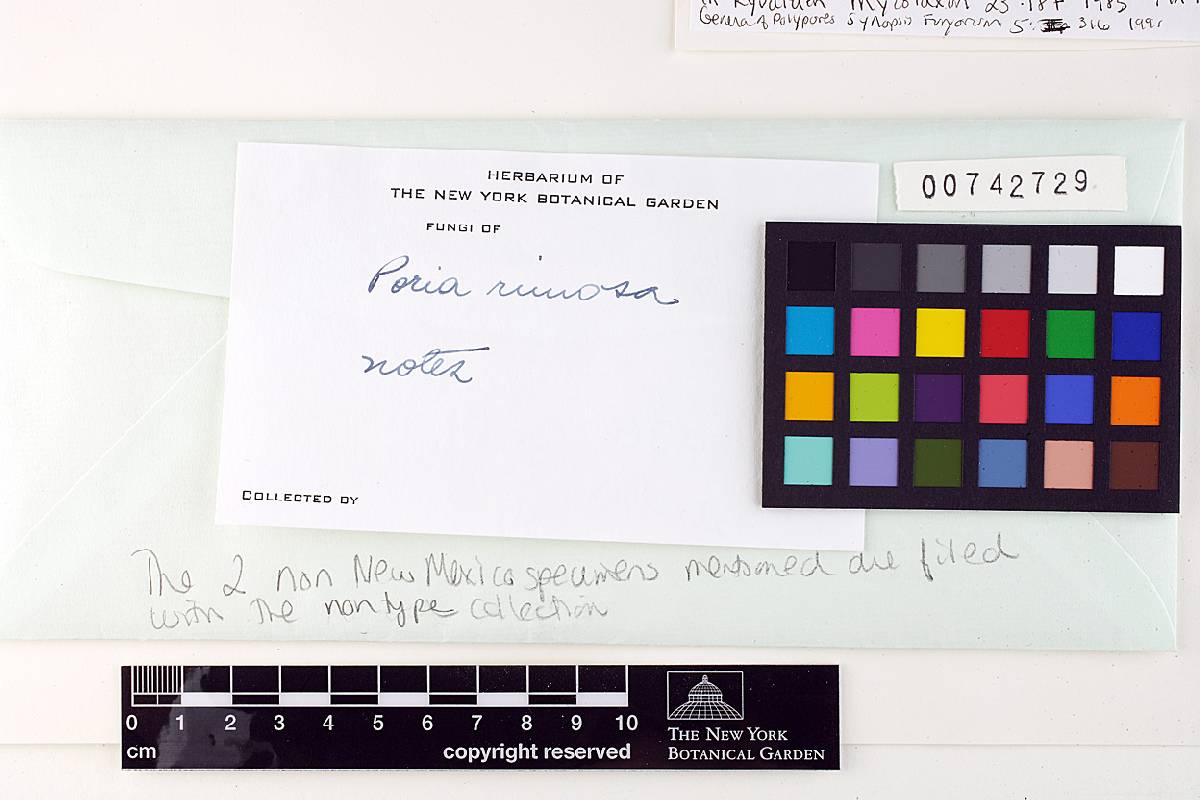 in Ryvarden Mycotaxon 23: 187 1985
Genera of Polypores Synopsis Fungorum 5: 316 1991
00742729
HERBARIUM OF
THE NEW YORK BOTANICAL GARDEN
FUNGI OF
Poria rimosa
notes
COLLECTED BY
The 2 non New Mexico specimens mentioned are filed
with the nontype collection
0 1 2 3 4 5 6 7 8 9 10
cm copyright reserved
THE NEW YORK
BOTANICAL GARDEN